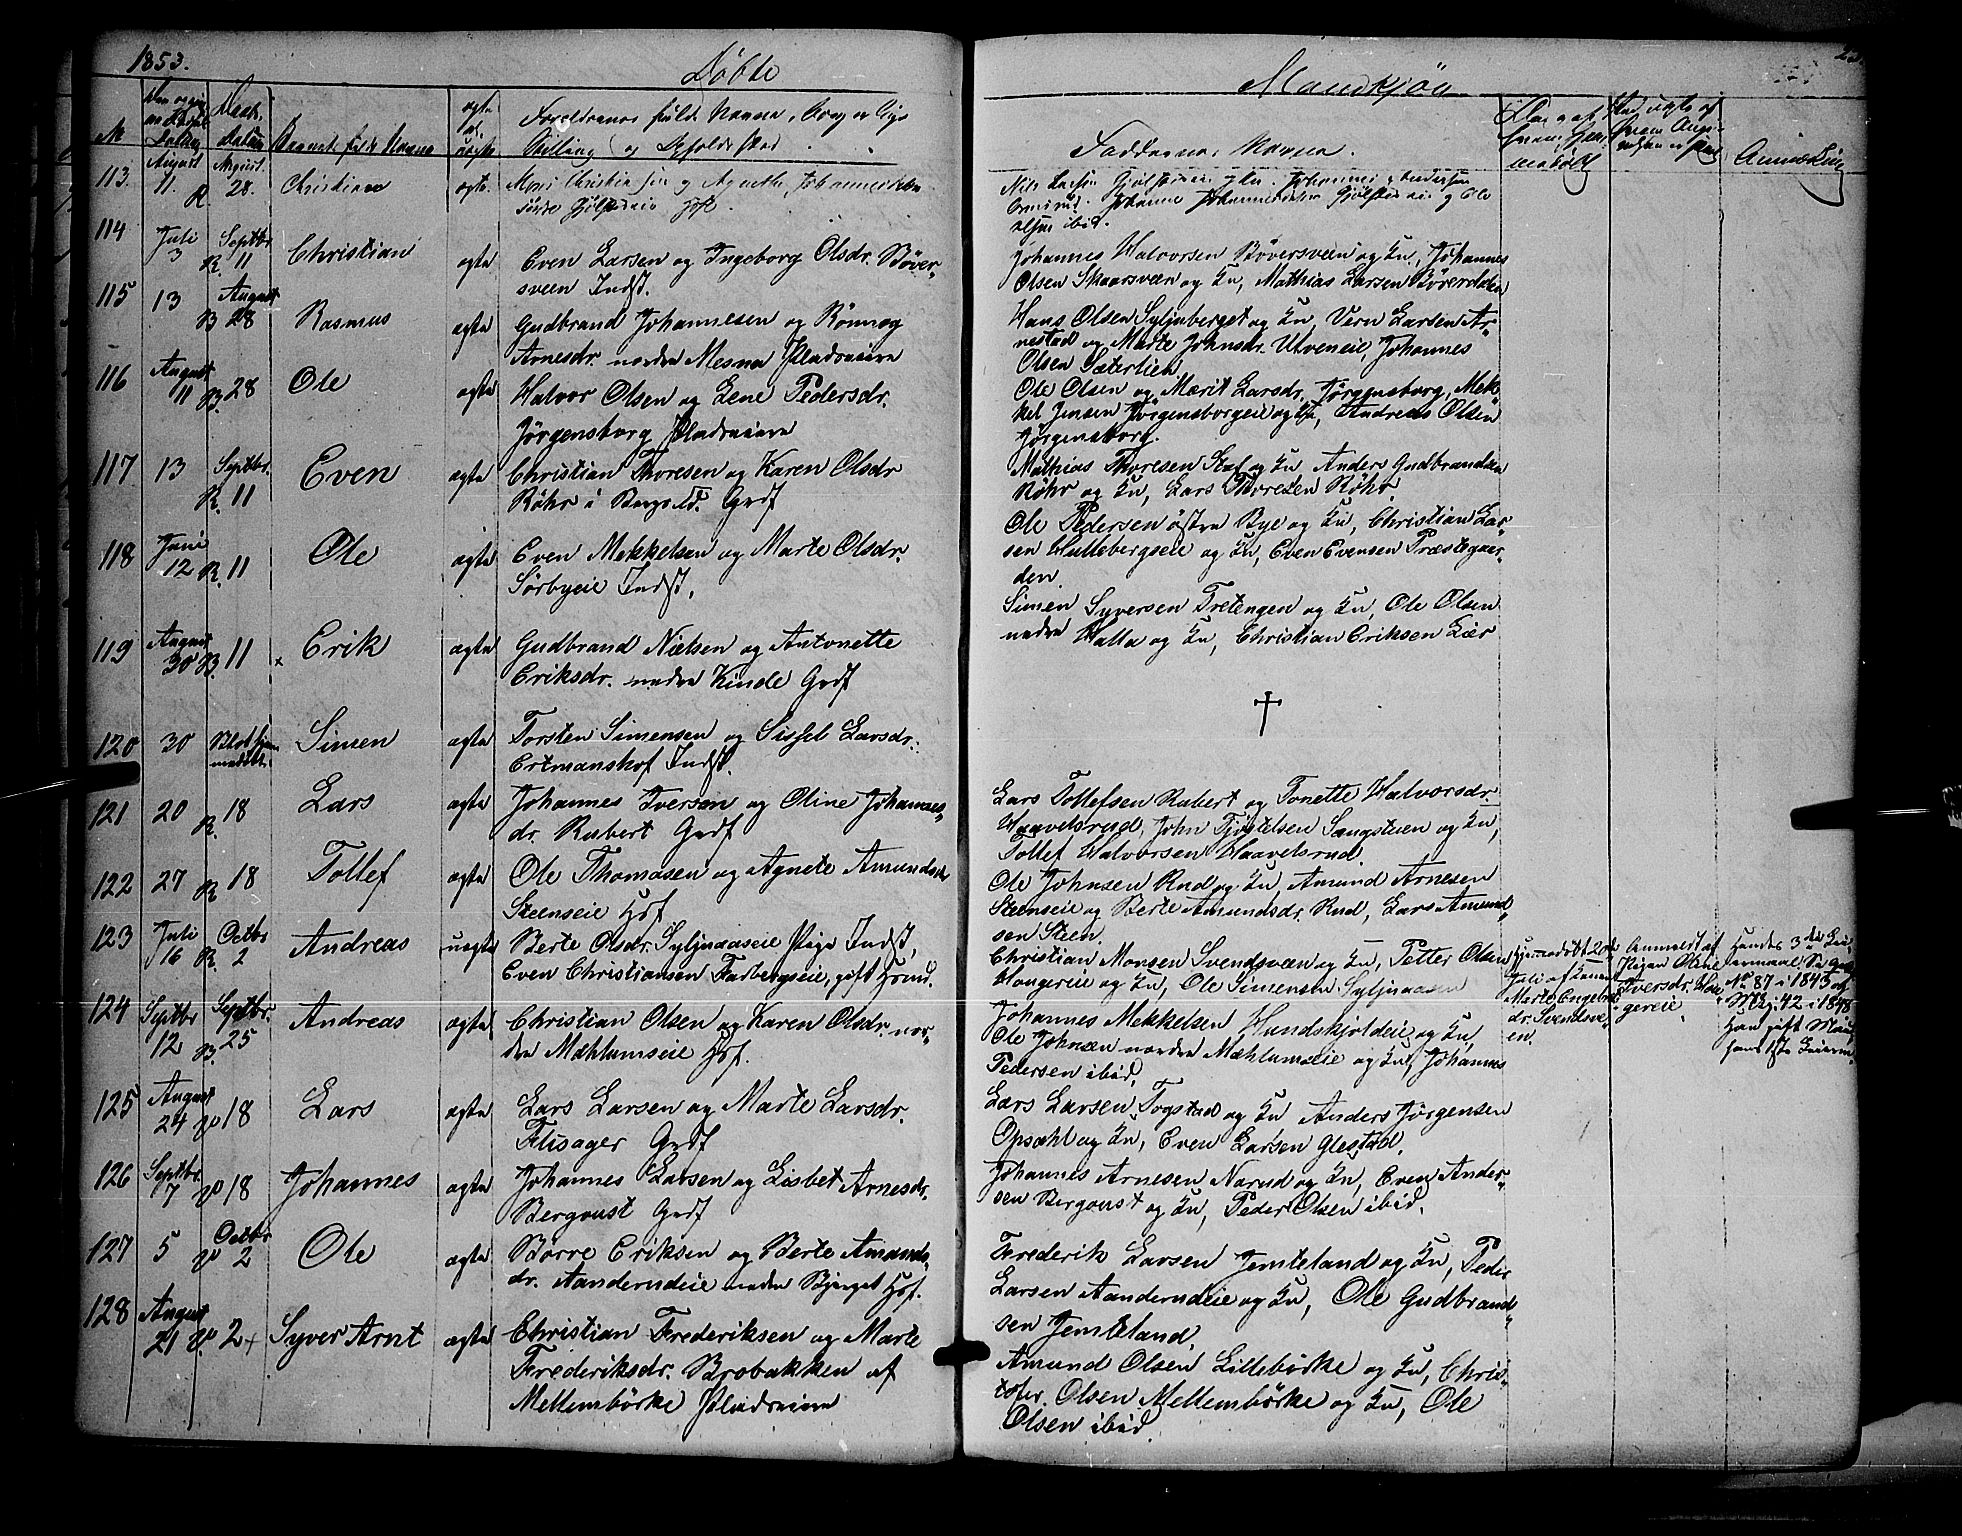 1853. Døbte Mandkjøn
№ Barnets fulde Navn ægte Forældrenes fulde Navne
Faddernes Navne.
113. August 11. R. August 28. Christian ægte.
Johannes
ibid.
114 Juli 3 R. Septbr. 11 Christian ægte Even Larsen og Ingeborg Olsdr. Böver-
sveen Indst.
Johannes Halvorsen Böversveen og Ku, Johannes
Olsen Skaarsveen og Ku, Mathias Larsen
115 13 B August 28 Rasmus ægte Gudbrand Johannesen og Rönnog
Arnesdr. nordre Mesna Pladseiere
Hans Olsen Syljuberget og Ku, Vern Larsen Ar-
nestad og Marte Johnsdr. Utveneie, Johannes
Olsen Sæterlien
116 August 11 B. 28 Ole ægte Halvor Olsen og Lene Pedersdr.
Jörgensborg Pladseiere
Ole Olsen og Marit Larsdr. Jörgensborg, Mek-
kel Jensen Jörgensborgeie og Ku, Andreas Olsen
Jörgensborg.
117 13 Septbr. R. 11 Even ægte Christian Thoresen og Karen Olsdr
Röhr i Grdf
Mathias Thoresen og Ku, Anders Gudbrandsen
Röhr og Ku, Lars Thoresen Röhr.
118 Juni 12 R. 11 Ole ægte Even Mekkelsen og Marte Olsdr.
Sörbyeie Indst.
Ole Pedersen östre Bye og Ku, Christian Lar-
sen Hullebergseie og Ku, Even Evensen Præstegaar-
den.
119 August 30 B. 11 x Erik ægte Gudbrand Nielsen og Antonette
Eriksdr. nedre Kinde Grdf
Simen Syversen Tretengen og Ku, Ole Olsen
nedre Halla og Ku, Christian Eriksen Lier
120 30 Blot hjem-
medöbt. Simen ægte Torsten Simensen og Sissel Larsdr.
Ertmanshof Indst. †
121 20 R. 18 Lars ægte Johannes Iversen og Oline Johannes-
dr. Rubert Grdf
Lars Tollefsen Rubert og Tonette Halvorsdr.
Haavelsrud, John Tjöstelsen Sangstuen og Ku,
Tollef Halvorsen Haavelsrud.
122 27 R 18 Tollef ægte Ole Thomasen og Agnete Amundsdr
Steenseie Hsf.
Ole Johnsen Rud og Ku, Amund Arnesen
Steenseie og Berte Amundsdr. Rud, Lars Amund-
sen Steen.
123 Juli 16 R. Octbr 2 Andreas uægte Berte Olsdr. Syljuaaseie Pige Indst,
Even Christiansen Farbergseie, gift Huusm.
Christian Monsen Svendsveen og Ku, Petter Olsen
Hongereie og Ku, Ole Simensen Syljuaasen
Hjemmedöbt 20de
Juli af Kone
Marte Engebrets-
dr. Svendsve-
en.
Anmeldt af
Pigen Oline
Iversdr. Hon-
gereie.
Hendes 3die Lei-
ermaal.
№ 87 i 1843 og
№ 42 i 1848
Han gift Mand,
hans 1ste Leierm.
124 Septbr 12 B. Septbr. 25 Andreas ægte Christian Olsen og Karen Olsdr. nor-
dre Mæhlumseie Hsf.
Johannes Mekkelsen Hundskjoldeie og Ku,
Ole Johnsen nordre Mæhlumseie og Ku, Johannes
Pedersen ibid,
125 August 24 V 18 Lars ægte Lars Larsen og Marte Larsdr.
Flisager Grdf
Lars Larsen Togstad og Ku Anders Jörgensen
Opsahl og Ku, Even Larsen Glestad.
126 Septbr. 17 V 18 Johannes ægte Johannes Larsen og Lisbet Arnesdr.
Bergoust Grdf
Johannes Arnesen Narud og Ku, Even Ander-
sen Bergoust og Ku, Peder Olsen ibid.
127 5 V Octbr 2 Ole ægte Börre Eriksen og Berte Amunds-
dr. Aanderudeie nedre Bjerget Hsf.
Frederik Larsen Jemteland og Ku, Peder
Larsen Aanderudeie og Ku, Ole Gudbrand-
sen Jemteland
128 August 21 V. 2 + Syver Arnt ægte Christian Frederiksen og Marte
Frederiksdr. Brobakken af
Mellembörke Pladseiere
Amund Olsen Lillebörke og Ku, Chris-
tofer Olsen Mellembörke og Ku, Ole
Olsen ibid.